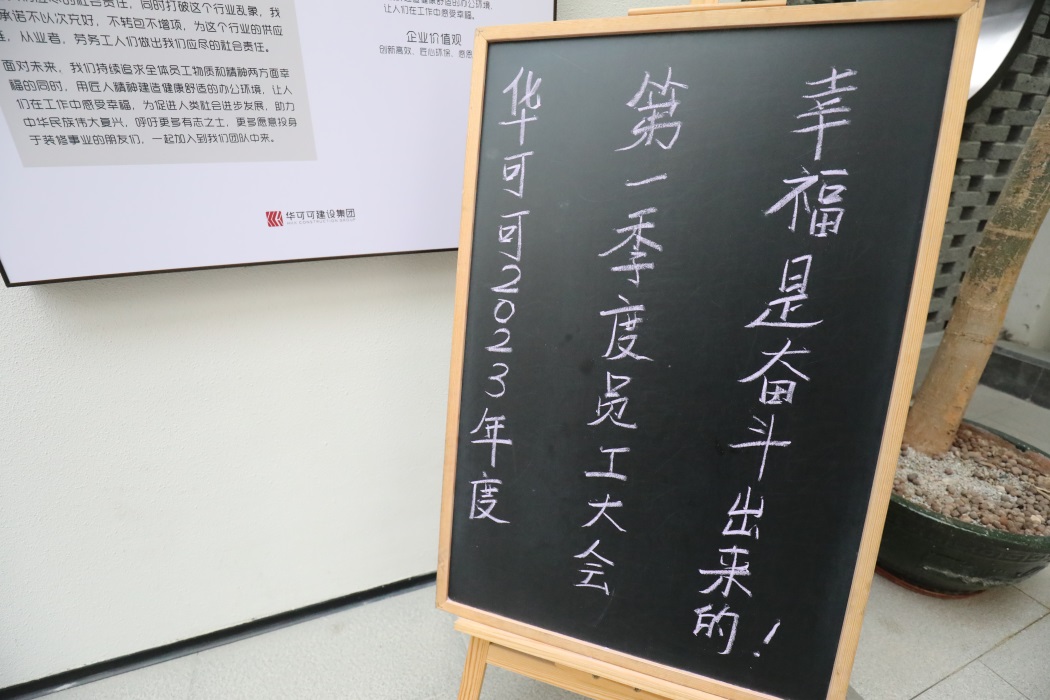 应尽的社会责任，同时打破这个行业乱象，我
承诺不以次充好，不转包不增项，为这个行业的供应
，从业者，劳务工人们做出我们应尽的社会责任。
面对未来，我们持续追求全体员工物质和精神两方面幸
福的同时，用匠人精神建造健康舒适的办公环境，让人
们在工作中感受幸福，为促进人类社会进步发展，助力
中华民族伟大复兴，呼吁更多有志之士，更多愿意投身
于装修事业的朋友们，一起加入到我们团队中来。
让人们在工作中感受幸福。
企业价值观
创新高效、匠心环保、感恩
华可可建设集团
华可可2023年度
第一季度员工大会
幸福是奋斗出来的！